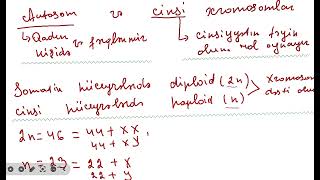 Autosom və cinsi xromosomlar
↳ Qadın
kişidə fərqlənmir
↳ cinsiyyətin təyin
oluna rol oynayır
Somatik hüceyrələrdə diploid (2n) > xromosom
cinsi hüceyrələrdə haploid (n) dəsti olur
2n = 46 = 44 + xx
44 + xy
n = 23 = 22 + x
22 + y